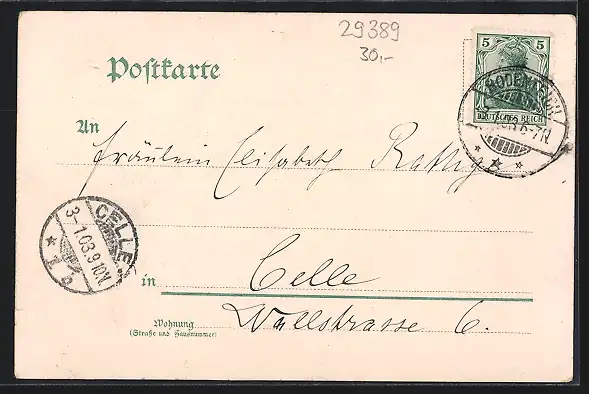 29389
30,-
Postkarte
5 5
DEUTSCHES REICH
6-7N
An
Fräulein Elisabeth
CELLE
3-1.03.9-10N.
* 1 b
in Celle
Wohnung Wallstrasse 6.
(Straße und Hausnummer)